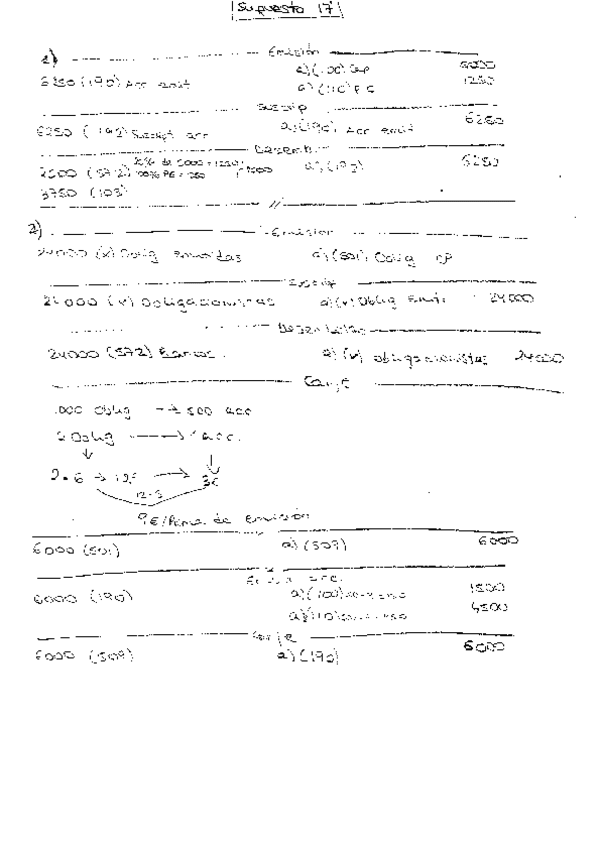 Supuesto 17
1) Emisión
6250 (190) Acc emit a) (100) Cap 5000
a) (110) P.E 1250
Suscrip
6250 (192) Suscpt acc a) (190) Acc emit 6250
Desemb.
2500 (572) a) (192) 6250
3750 (103)
2) Emisión
24000 (x) Oblig Emitidas a) (501) Oblig CP
Suscrip
24000 (x) Obligacionistas a) (x) Oblig Emit. 24000
Desembolso
24000 (572) Bancos a) (x) Obligacionistas 24000
Canje
000 Oblig → 500 acc
2 Oblig → 1 acc.
2·6 → 12€ → 3€
12-3
9€/Prima de emisión
6000 (501) a) (509) 6000
acc.
6000 (190) a) (100) 1500
a) (110) 4500
Canje
6000 (509) a) (190) 6000